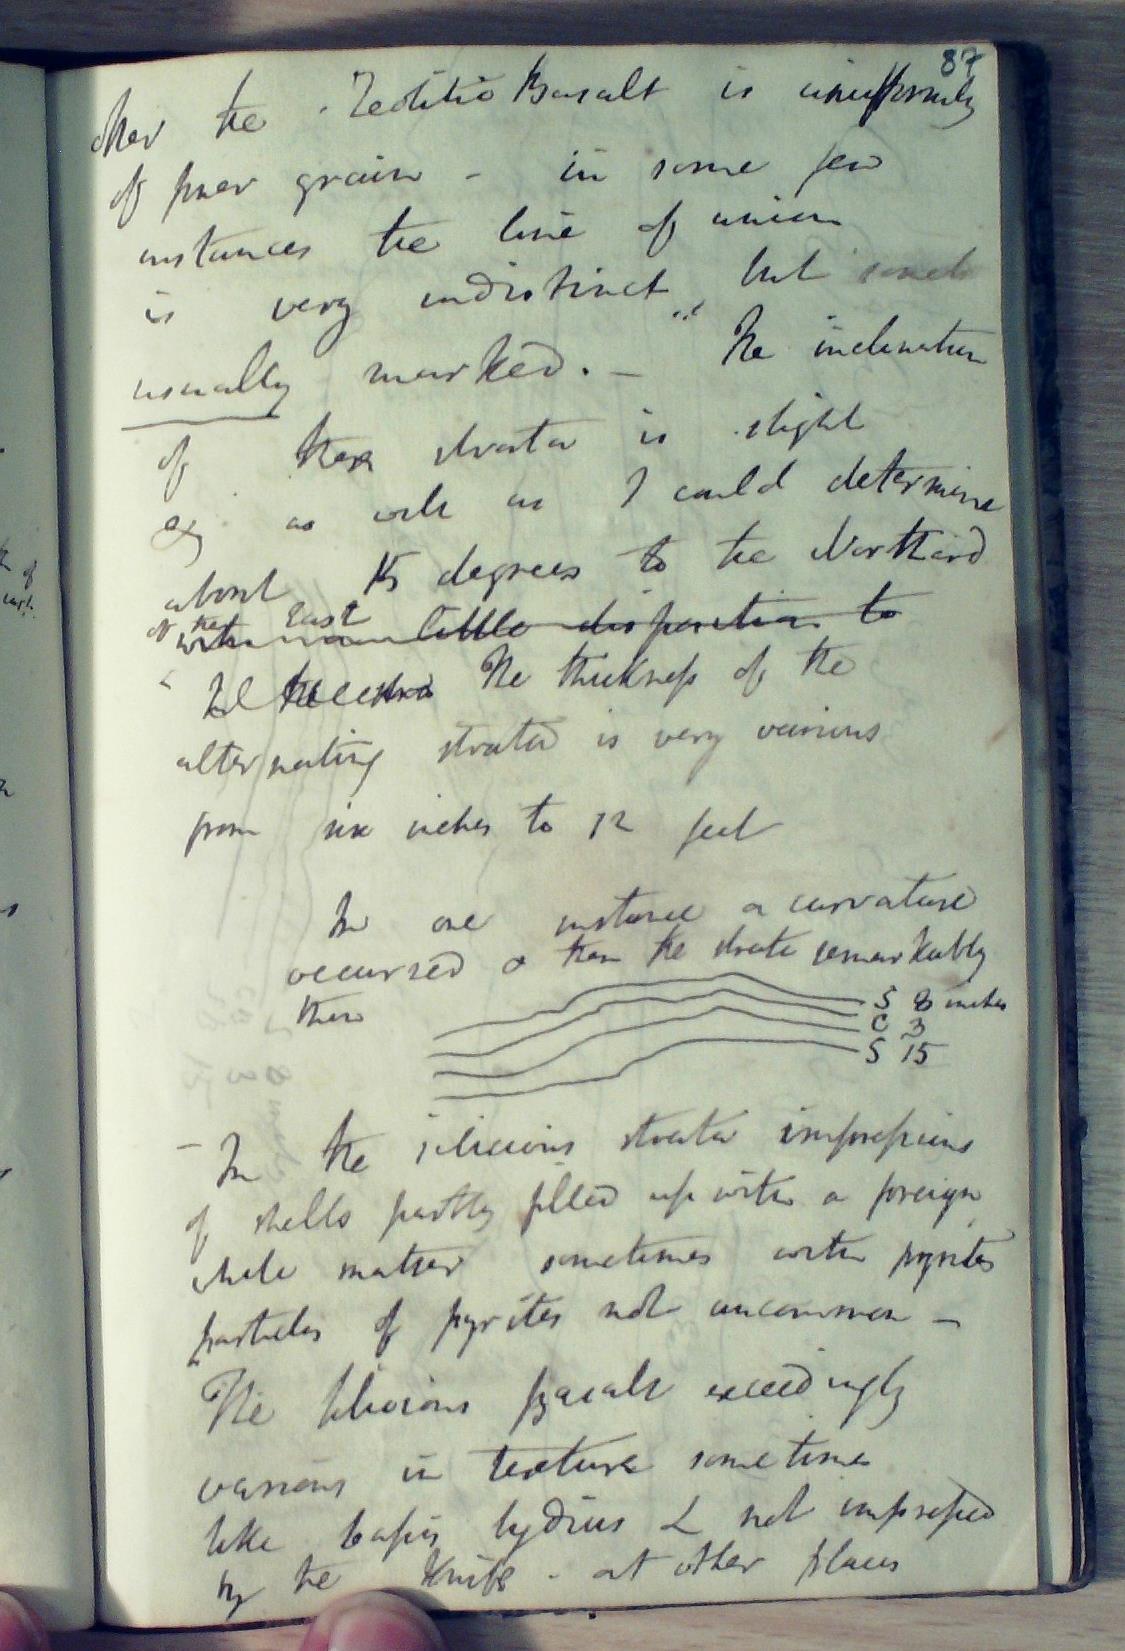 87
other the Zeolitic Basalt is uniformly
of finer grain - in some few
instances the line of union
is very indistinct but
usually marked. - The inclination
of these strata is slight
as well as I could determine
about 15 degrees to the Northward
of the East
with little disposition to
The thickness of the
alternating strata is very various
from six inches to 12 feet
In one instance a curvature
occurred & then the strata remarkably
thin
S 8 inches
C 3
S 15
- In the silicious strata impressions
of shells partly filled up with a foreign
white matter sometimes with pyrites
particles of pyrites not uncommon -
The silicious basalt exceedingly
various in texture sometimes
like lapis lydius & not impressed
by the knife - at other places